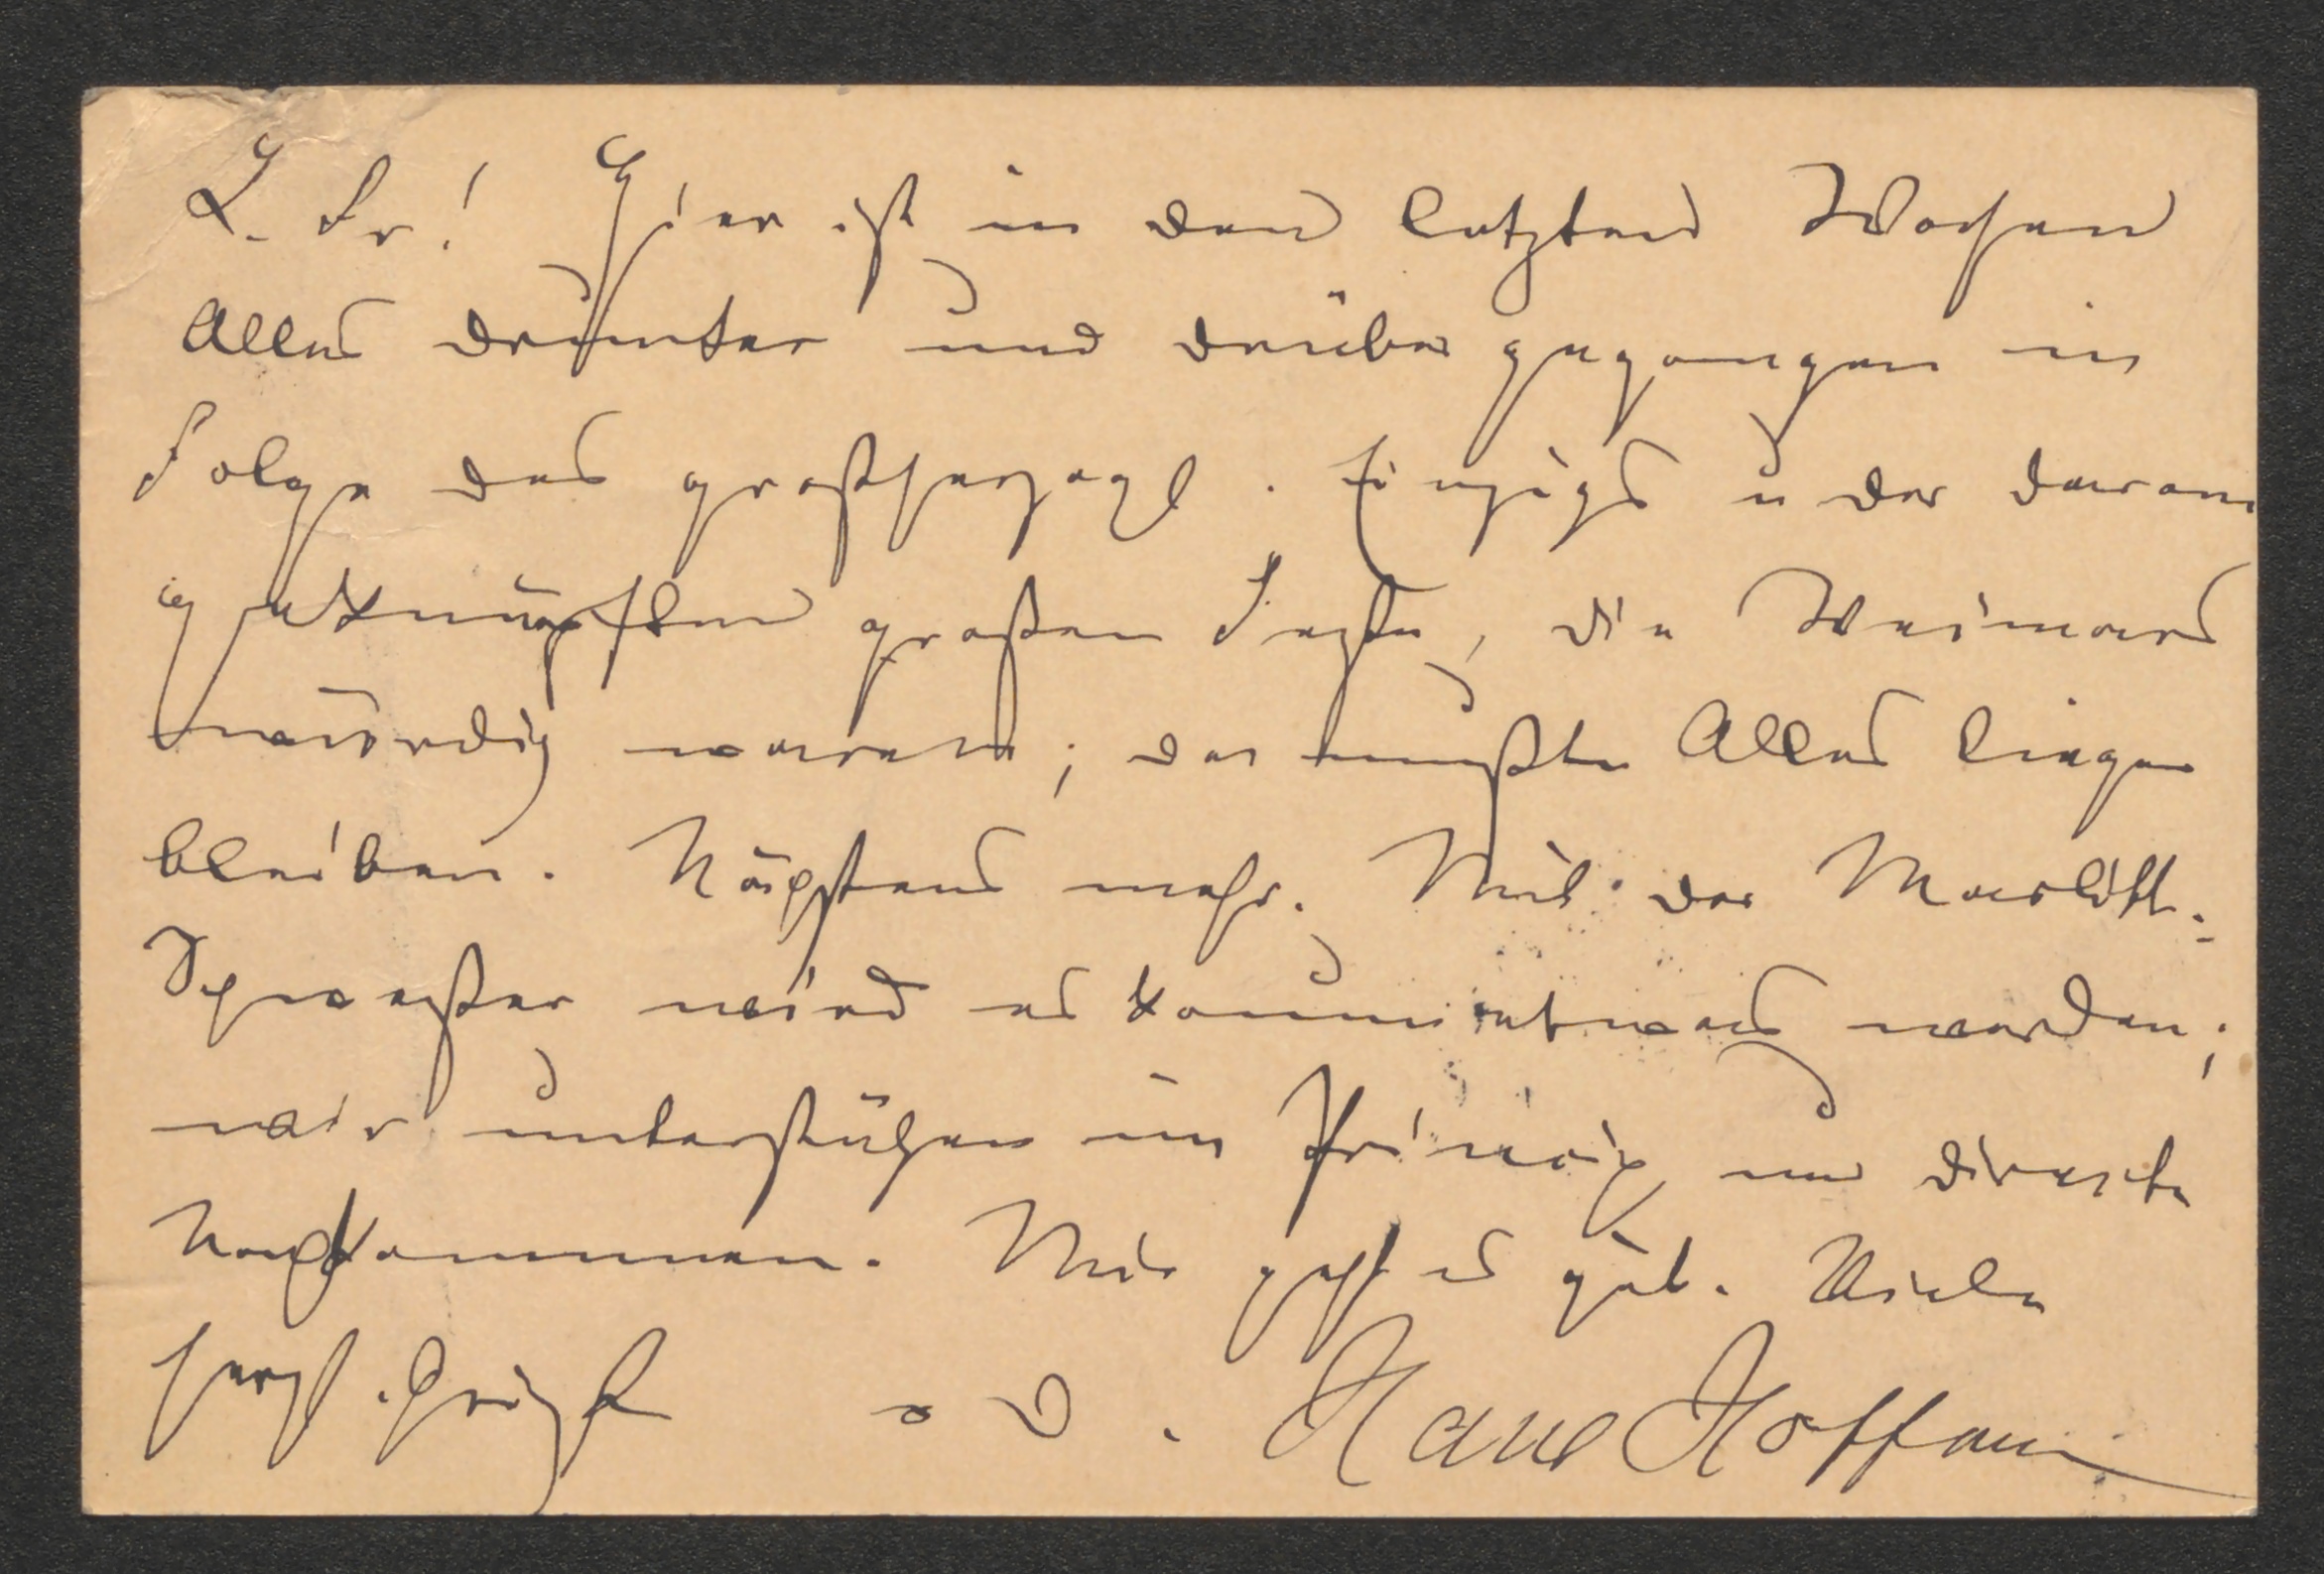 L. Fr! Hier ist in den letzten Wochen
Alles drunter und drüber gegangen in
Folge des großherzogl. Einzugs u der daran
geknüpften großen Feste, die Weimars
würdig waren; da mußte Alles liegen
bleiben. Nächstens mehr. Mit der Marlitt-
Schwester wird es kaum etwas werden;
wir unterstützen im Princip nur directe
Nachkommen. Mir geht es gut. Viele
herzl. Grüße Hans Hoffmann